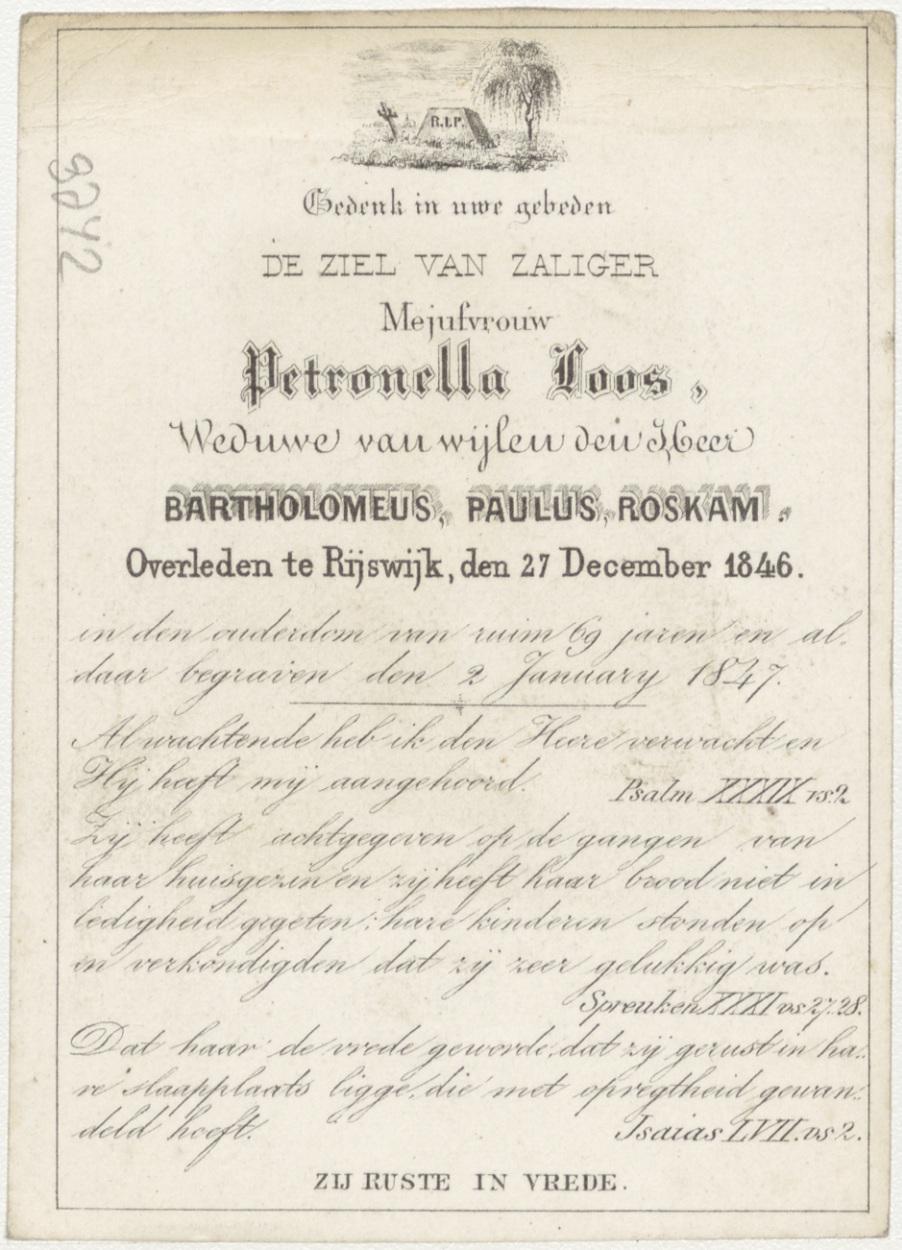 R.I.P.
Gedenk in uwe gebeden
DE ZIEL VAN ZALIGER
Mejufvrouw
Petronella Loos,
Weduwe van wijlen den Heer
BARTHOLOMEUS, PAULUS, ROSKAM.
Overleden te Rijswijk, den 27 December 1846.
in den ouderdom van ruim 69 jaren en al-
daar begraven den 2 January 1847.
Al wachtende heb ik den Heere verwacht en
Hij heeft mij aangehoord.
Psalm XXXIX vs. 2
Zij heeft achtgegeven op de gangen van
haar huisgezin en zij heeft haar brood niet in
ledigheid gegeten; hare kinderen stonden op
en verkondigden dat zij zeer gelukkig was.
Spreuken XXXI vs 27. 28.
Dat haar de vrede geworde, dat zij gerust in ha-
re slaapplaats ligge, die met opregtheid gewan-
deld heeft.
Isaias LVII. vs 2.
ZIJ RUSTE IN VREDE.
9242